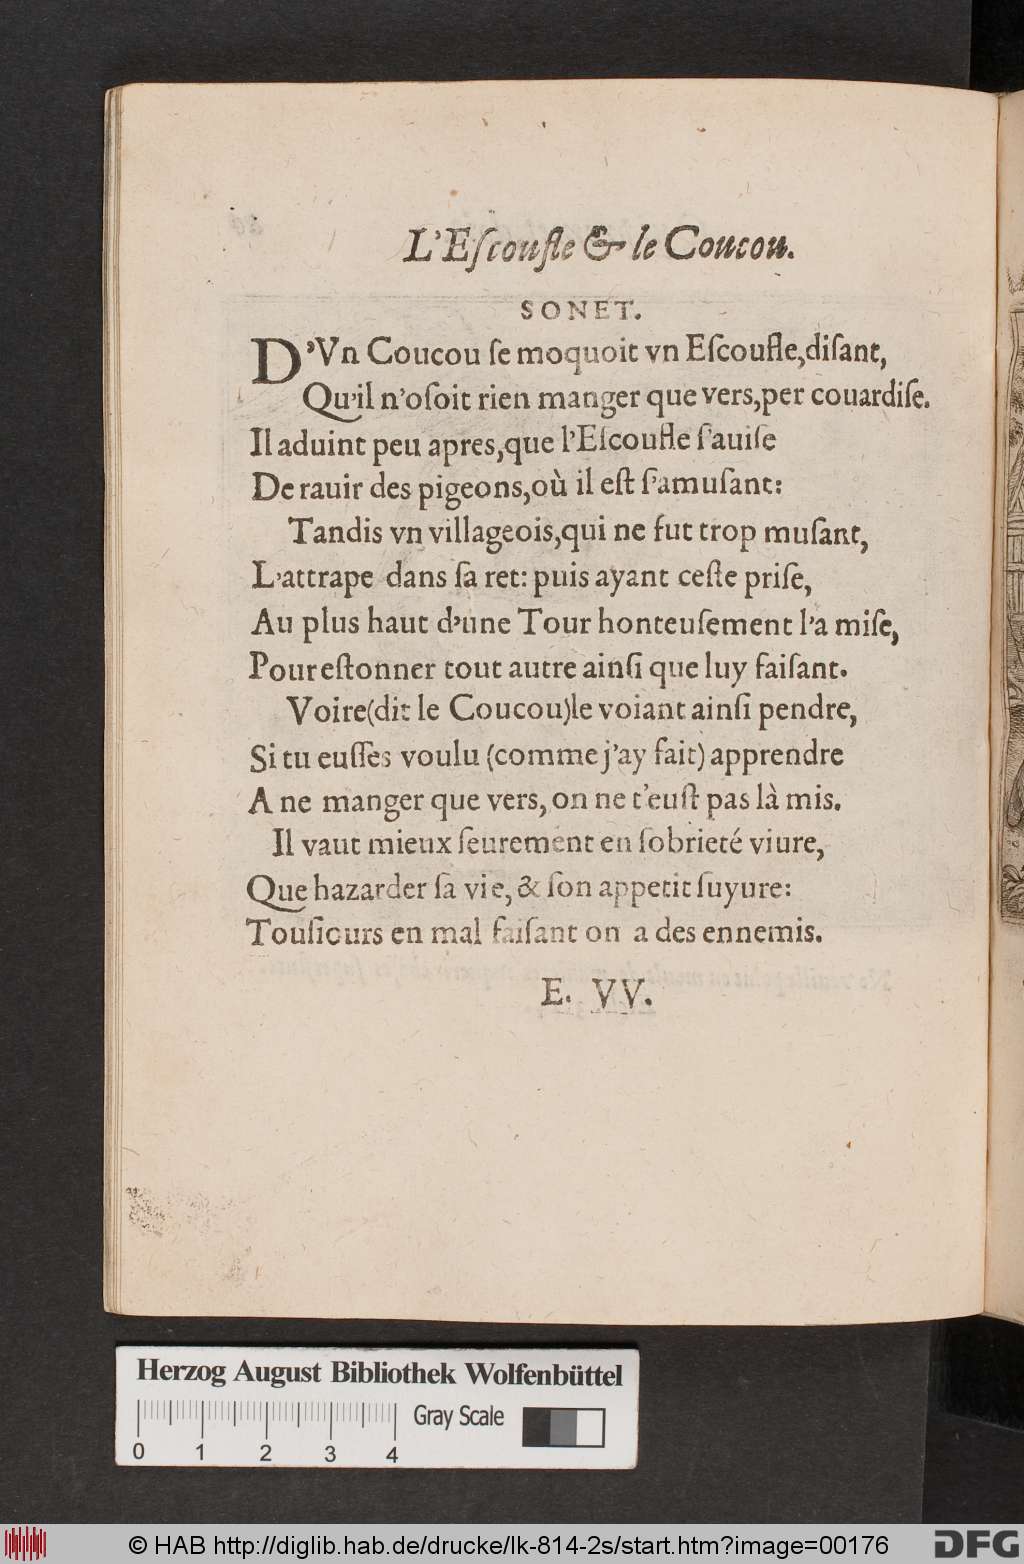 L'Eſcoufle & le Coucou.
SONET.
D'Vn Coucou ſe moquoit vn Eſcoufle, diſant,
Qu'il n'oſoit rien manger que vers, per couardiſe.
Il aduint peu apres, que l'Eſcoufle ſ'auiſe
De rauir des pigeons, où il eſt ſ'amuſant:
Tandis vn villageois, qui ne fut trop muſant,
L'attrape dans ſa ret: puis ayant ceſte priſe,
Au plus haut d'une Tour honteuſement l'a miſe,
Pour eſtonner tout autre ainſi que luy faiſant.
Voire (dit le Coucou) le voiant ainſi pendre,
Si tu euſſes voulu (comme j'ay fait) apprendre
A ne manger que vers, on ne t'euſt pas là mis.
Il vaut mieux ſeurement en ſobrieté viure,
Que hazarder ſa vie, & ſon appetit ſuyure:
Touſiours en mal faiſant on a des ennemis.
E. VV.
Herzog August Bibliothek Wolfenbüttel
Gray Scale
0 1 2 3 4
© HAB http://diglib.hab.de/drucke/lk-814-2s/start.htm?image=00176
DFG